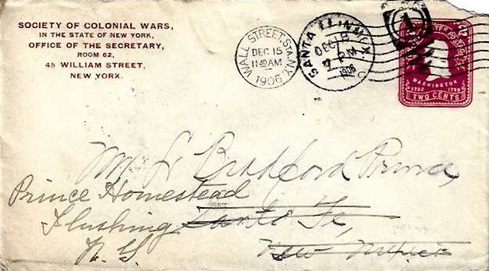 SOCIETY OF COLONIAL WARS,
IN THE STATE OF NEW YORK,
OFFICE OF THE SECRETARY,
ROOM 62,
45 WILLIAM STREET,
NEW YORK.
WALL STREET STA. N.Y.
DEC 15
11 AM
1906
SANTA
DEC
PM
1906
1
WASHINGTON
TWO CENTS
L. Bradford Prince,
Prince Homestead
Flushing Santa Fe,
N. Y. New Mexico